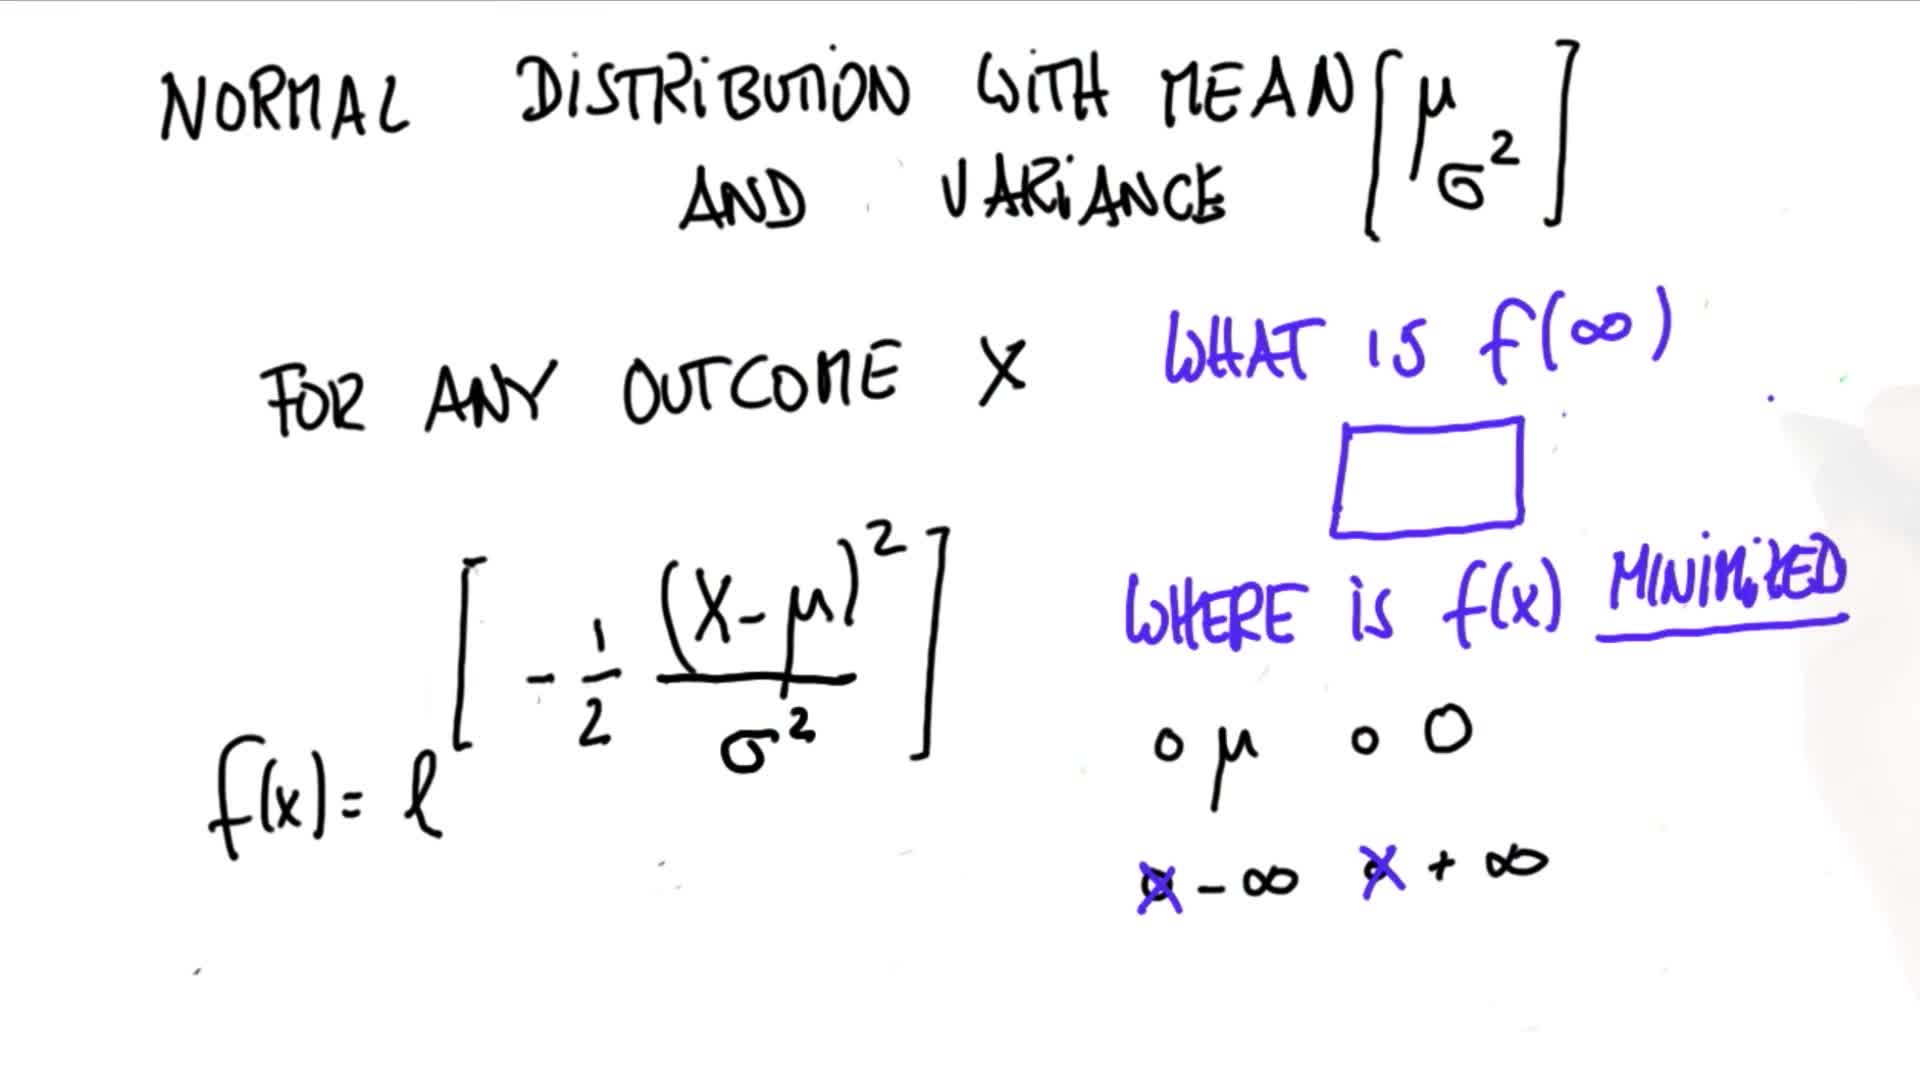 NORMAL DISTRIBUTION WITH MEAN [μ
AND VARIANCE σ²]
FOR ANY OUTCOME X
f(x) = e^[-1/2 (X-μ)²/σ²]
WHAT IS f(∞)
WHERE IS f(x) MINIMIZED
o μ o 0
x - ∞ x + ∞